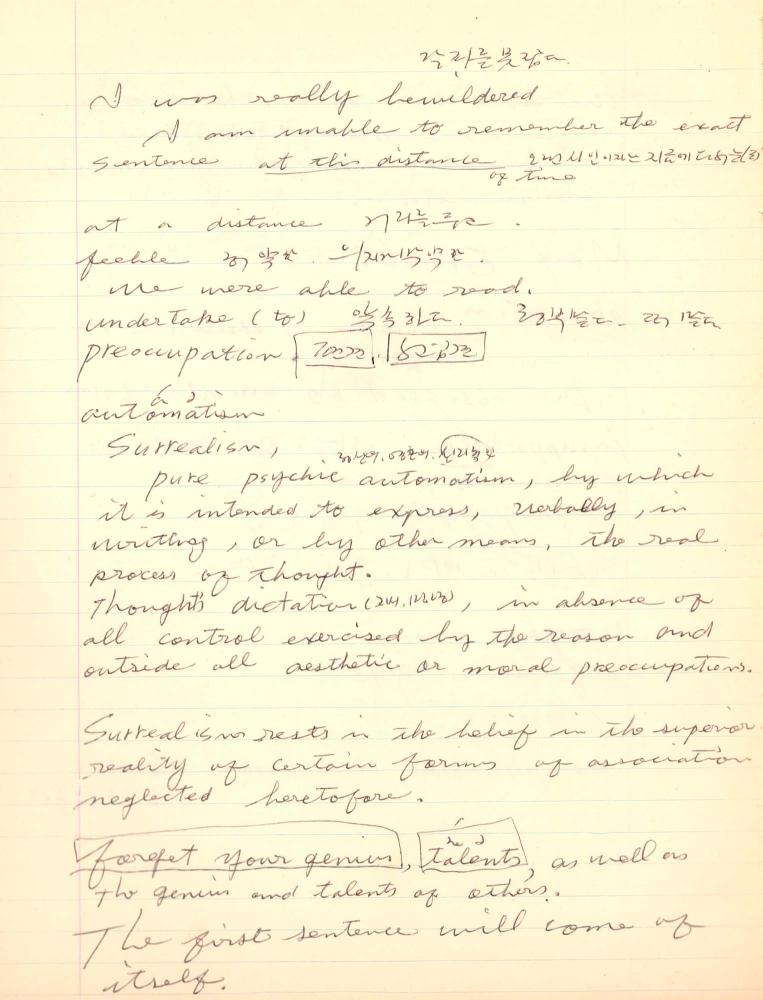 I was really bewildered
I am unable to remember the exact
sentence at this distance
of time
at a distance
feeble 허약한. 의지박약한.
We were able to read.
undertake (to) 약속하다.
preoccupation
automatism
Surrealism,
pure psychic automatism, by which
it is intended to express, verbally, in
writting, or by other means, the real
process of thought.
Thought's dictation, in absence of
all control exercised by the reason and
outside all aesthetic or moral preoccupations.
Surrealism rests in the belief in the superior
reality of certain forms of association
neglected heretofore.
forget your genius, talents, as well as
the genius and talents of others.
The first sentence will come of
itself.